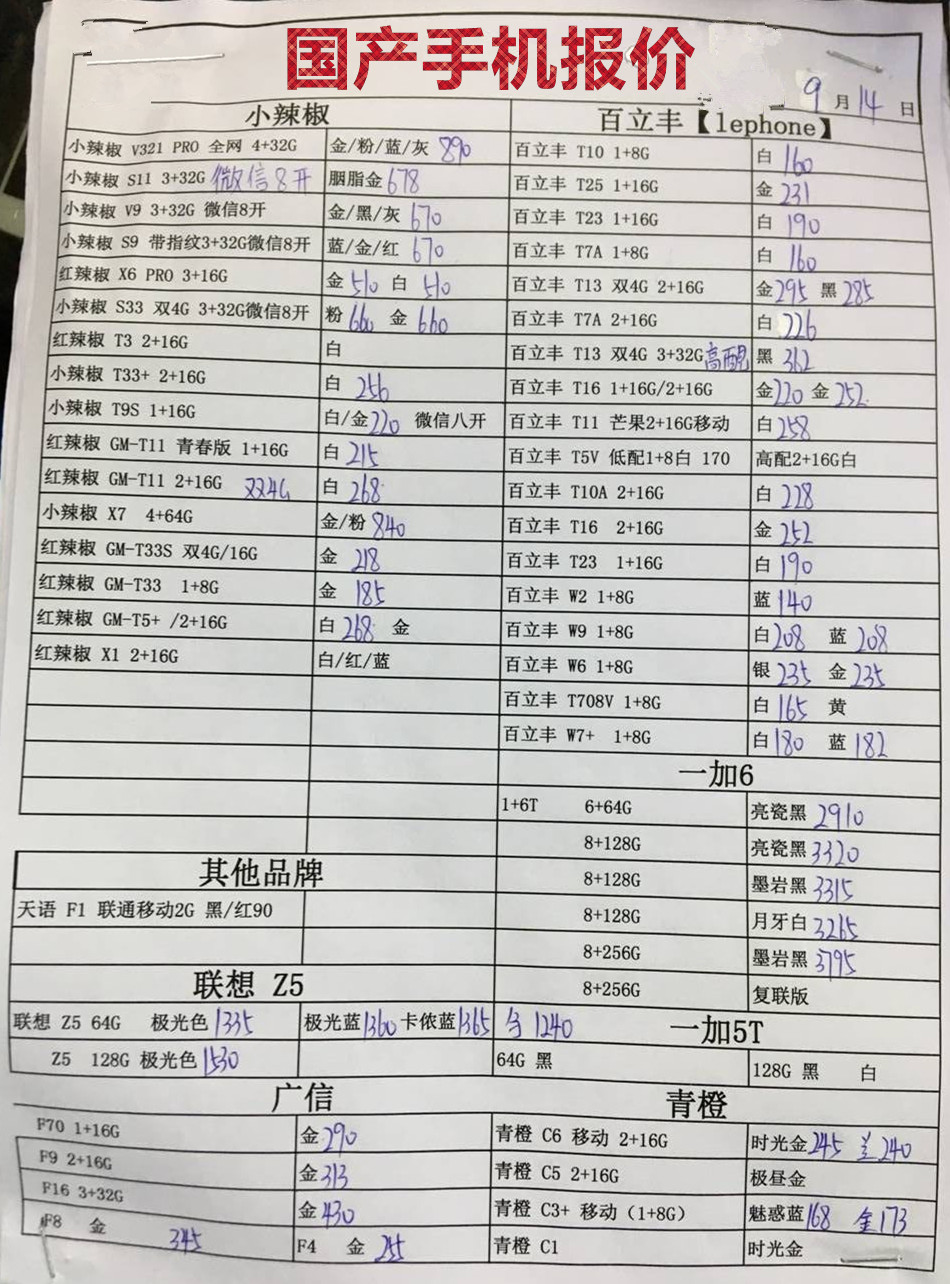 国产手机报价
9月14日
小辣椒
小辣椒 V321 PRO 全网 4+32G 金/粉/蓝/灰 890
小辣椒 S11 3+32G 微信8开 胭脂金 678
小辣椒 V9 3+32G 微信8开 金/黑/灰 670
小辣椒 S9 带指纹3+32G微信8开 蓝/金/红 670
红辣椒 X6 PRO 3+16G 金 510 白 510
小辣椒 S33 双4G 3+32G微信8开 粉 660 金 660
红辣椒 T3 2+16G 白
小辣椒 T33+ 2+16G 白 256
小辣椒 T9S 1+16G 白/金 220 微信八开
红辣椒 GM-T11 青春版 1+16G 白 215
红辣椒 GM-T11 2+16G 双4G 白 268
小辣椒 X7 4+64G 金/粉 840
红辣椒 GM-T33S 双4G/16G 金 218
红辣椒 GM-T33 1+8G 金 185
红辣椒 GM-T5+ /2+16G 白 268 金
红辣椒 X1 2+16G 白/红/蓝
其他品牌
天语 F1 联通移动2G 黑/红90
联想 Z5
联想 Z5 64G 极光色 1335 极光蓝 1360 卡侬蓝 1365 1240
Z5 128G 极光色 1530
广信
F70 1+16G 金 290
F9 2+16G 金 313
F16 3+32G 金 430
F8 金 345 F4 金 255
百立丰【lephone】
百立丰 T10 1+8G 白 160
百立丰 T25 1+16G 金 231
百立丰 T23 1+16G 白 190
百立丰 T7A 1+8G 白 160
百立丰 T13 双4G 2+16G 金 295 黑 285
百立丰 T7A 2+16G 白 226
百立丰 T13 双4G 3+32G 高配 黑 362
百立丰 T16 1+16G/2+16G 金 220 金 252
百立丰 T11 芒果2+16G移动 白 258
百立丰 T5V 低配1+8白 170 高配2+16G白
百立丰 T10A 2+16G 白 228
百立丰 T16 2+16G 金 252
百立丰 T23 1+16G 白 190
百立丰 W2 1+8G 蓝 140
百立丰 W9 1+8G 白 208 蓝 208
百立丰 W6 1+8G 银 235 金 235
百立丰 T708V 1+8G 白 165 黄
百立丰 W7+ 1+8G 白 180 蓝 182
一加6
1+6T 6+64G 亮瓷黑 2910
8+128G 亮瓷黑 3320
8+128G 墨岩黑 3315
8+128G 月牙白 3265
8+256G 墨岩黑 3795
8+256G 复联版
一加5T
64G 黑 128G 黑 白
青橙
青橙 C6 移动 2+16G 时光金 245 兰 240
青橙 C5 2+16G 极昼金
青橙 C3+ 移动（1+8G） 魅惑蓝 168 金 173
青橙 C1 时光金